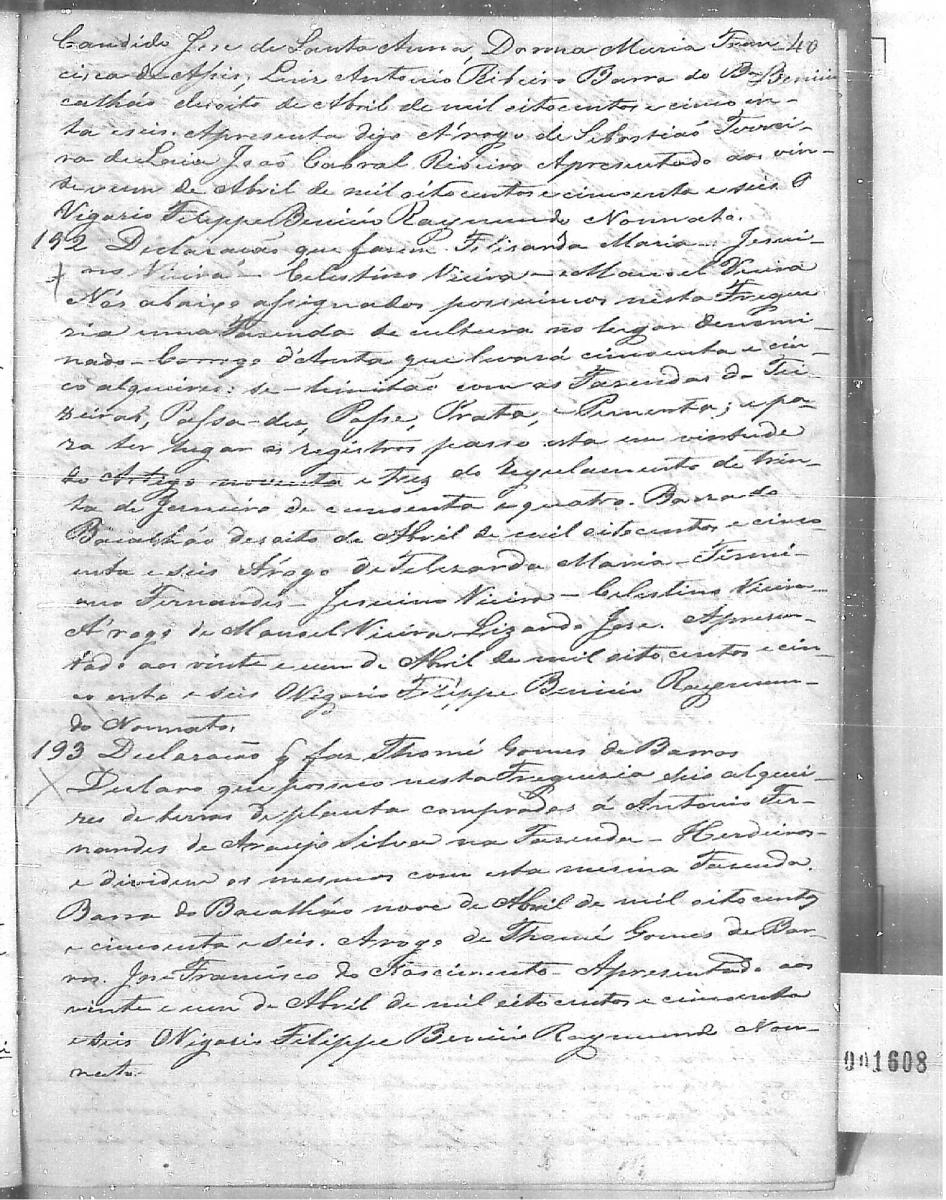 Candido Jose de Santa Anna, Donna Maria Fran- 40
cisca de Assis, Luiz Antonio Ribeiro Barra do
calháo desoito de Abril de mil oitocentos e cincoen-
ta e seis. Apresenta digo A'rogo de Sebastiaõ Ferrei-
ra de Joaõ Cabral Ribeiro Apresentado aos vin-
te e um de Abril de mil oitocentos e cincoenta e seis O
Vigario Filippe Benicio Raymundo Nonnato.
192 Declaracaõ que fazem Felisarda Maria - Jesui-
no Vieira - Celestino Vieira - e Manoel Vieira
Nós abaixo assignados possuimos nesta Fregue
zia uma Fazenda de cultura no lugar denomi-
nado - Corrego d'Anta que levará cincoenta e cin-
co alqueires: se-limitaõ com as Fazendas do Tei-
xeiras, Passa-dez, Posse, Prata, e Pimenta; e pa-
ra ter lugar os registros passo esta em virtude
do Artigo noventa e trez do Regulamento de trin-
ta de Janeiro de cincoenta e quatro. Barra do
Bacalháo desoito de Abril de mil oitocentos e cinco
enta e seis A'rogo de Felizarda Maria - Firmi-
ano Fernandes - Jesuino Vieira - Celestino Vieira -
A'rogo de Manoel Vieira - Lizardo Jose. Apresen-
tado aos vinte e um de Abril de mil oitocentos e cin-
coenta e seis O Vigario Filippe Benicio Raymun-
do Nonnato.
193 Declaracaõ q faz Thomé Gomes de Barros
Declaro que possuo nesta Freguezia seis alquei-
res de terras de planta compradas á Antonio Fer-
nandes de Araujo Silva na Fazenda - Herdeiros -
e dividem os mesmos com esta mesma Fazenda.
Barra do Bacalháo nove de Abril de mil oitocentos
e cincoenta e seis. A rogo de Thomé Gomes de Bar-
ros. Jose Francisco do Nascimento - Apresentado aos
vinte e um de Abril de mil oitocentos e cincoenta
e seis O Vigario Filippe Benicio Raymundo Non-
nato.
001608